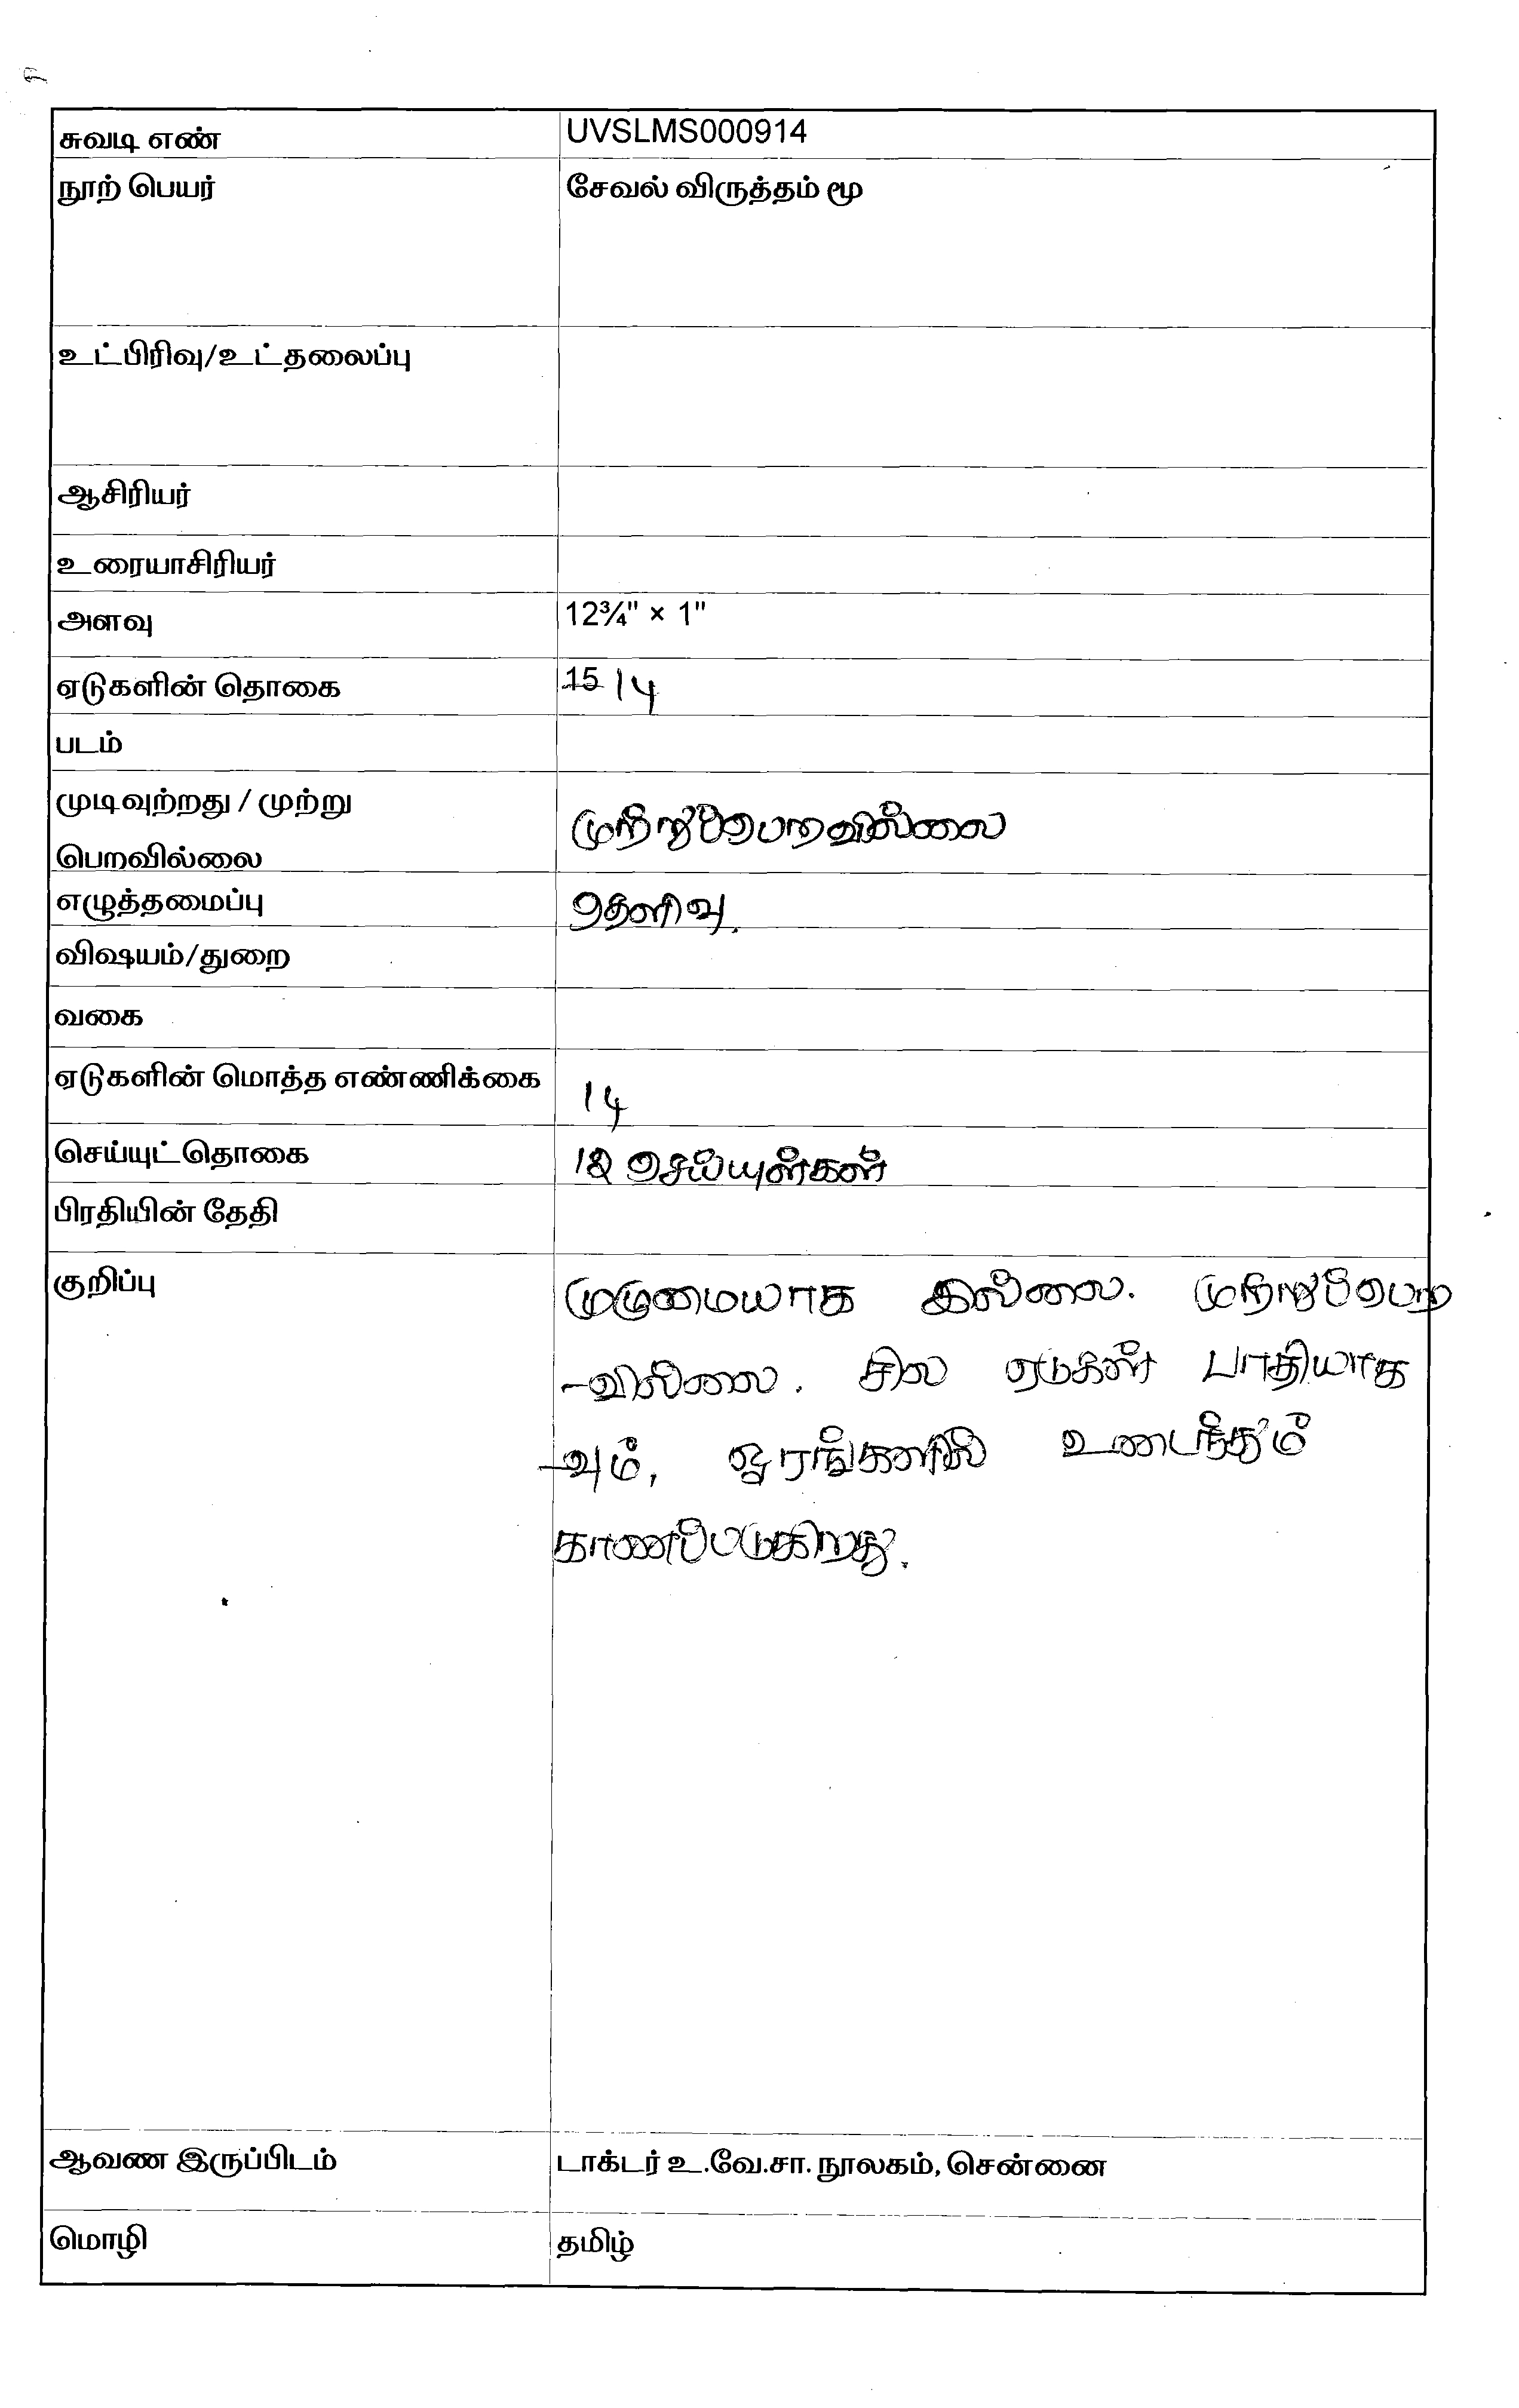 சுவடி எண் UVSLMS000914
நூற் பெயர் சேவல் விருத்தம் மூ
உட்பிரிவு/உட்தலைப்பு
ஆசிரியர்
உரையாசிரியர்
அளவு 12¾" × 1"
ஏடுகளின் தொகை 15 14
படம்
முடிவுற்றது / முற்று
பெறவில்லை முற்றுப்பெறவில்லை
எழுத்தமைப்பு தெளிவு.
விஷயம்/துறை
வகை
ஏடுகளின் மொத்த எண்ணிக்கை 14
செய்யுட்தொகை செய்யுள்கள்
பிரதியின் தேதி
குறிப்பு முழுமையாக இல்லை. முற்றுப்பெற
-வில்லை. சில ஏடுகள் பாதியாக
-வும், ஓரங்களில் உடைந்தும்
காணப்படுகிறது.
ஆவண இருப்பிடம் டாக்டர் உ.வே.சா. நூலகம், சென்னை
மொழி தமிழ்